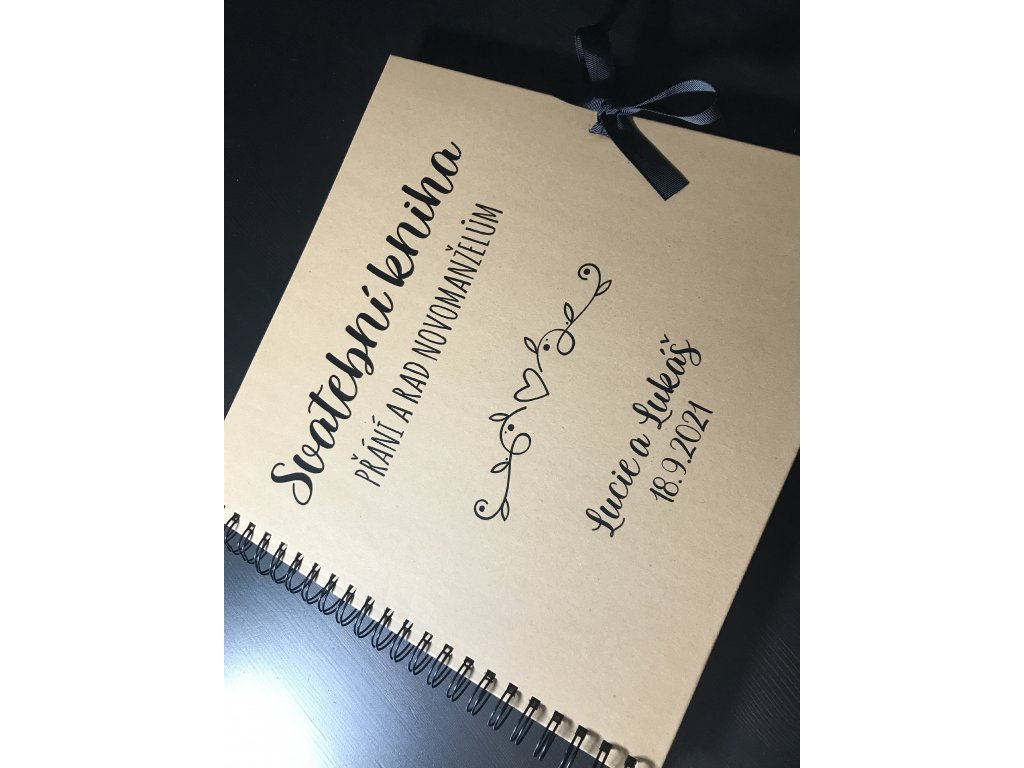 Svatební kniha
PŘÁNÍ A RAD NOVOMANŽELŮM
Lucie a Lukáš
18.9.2021